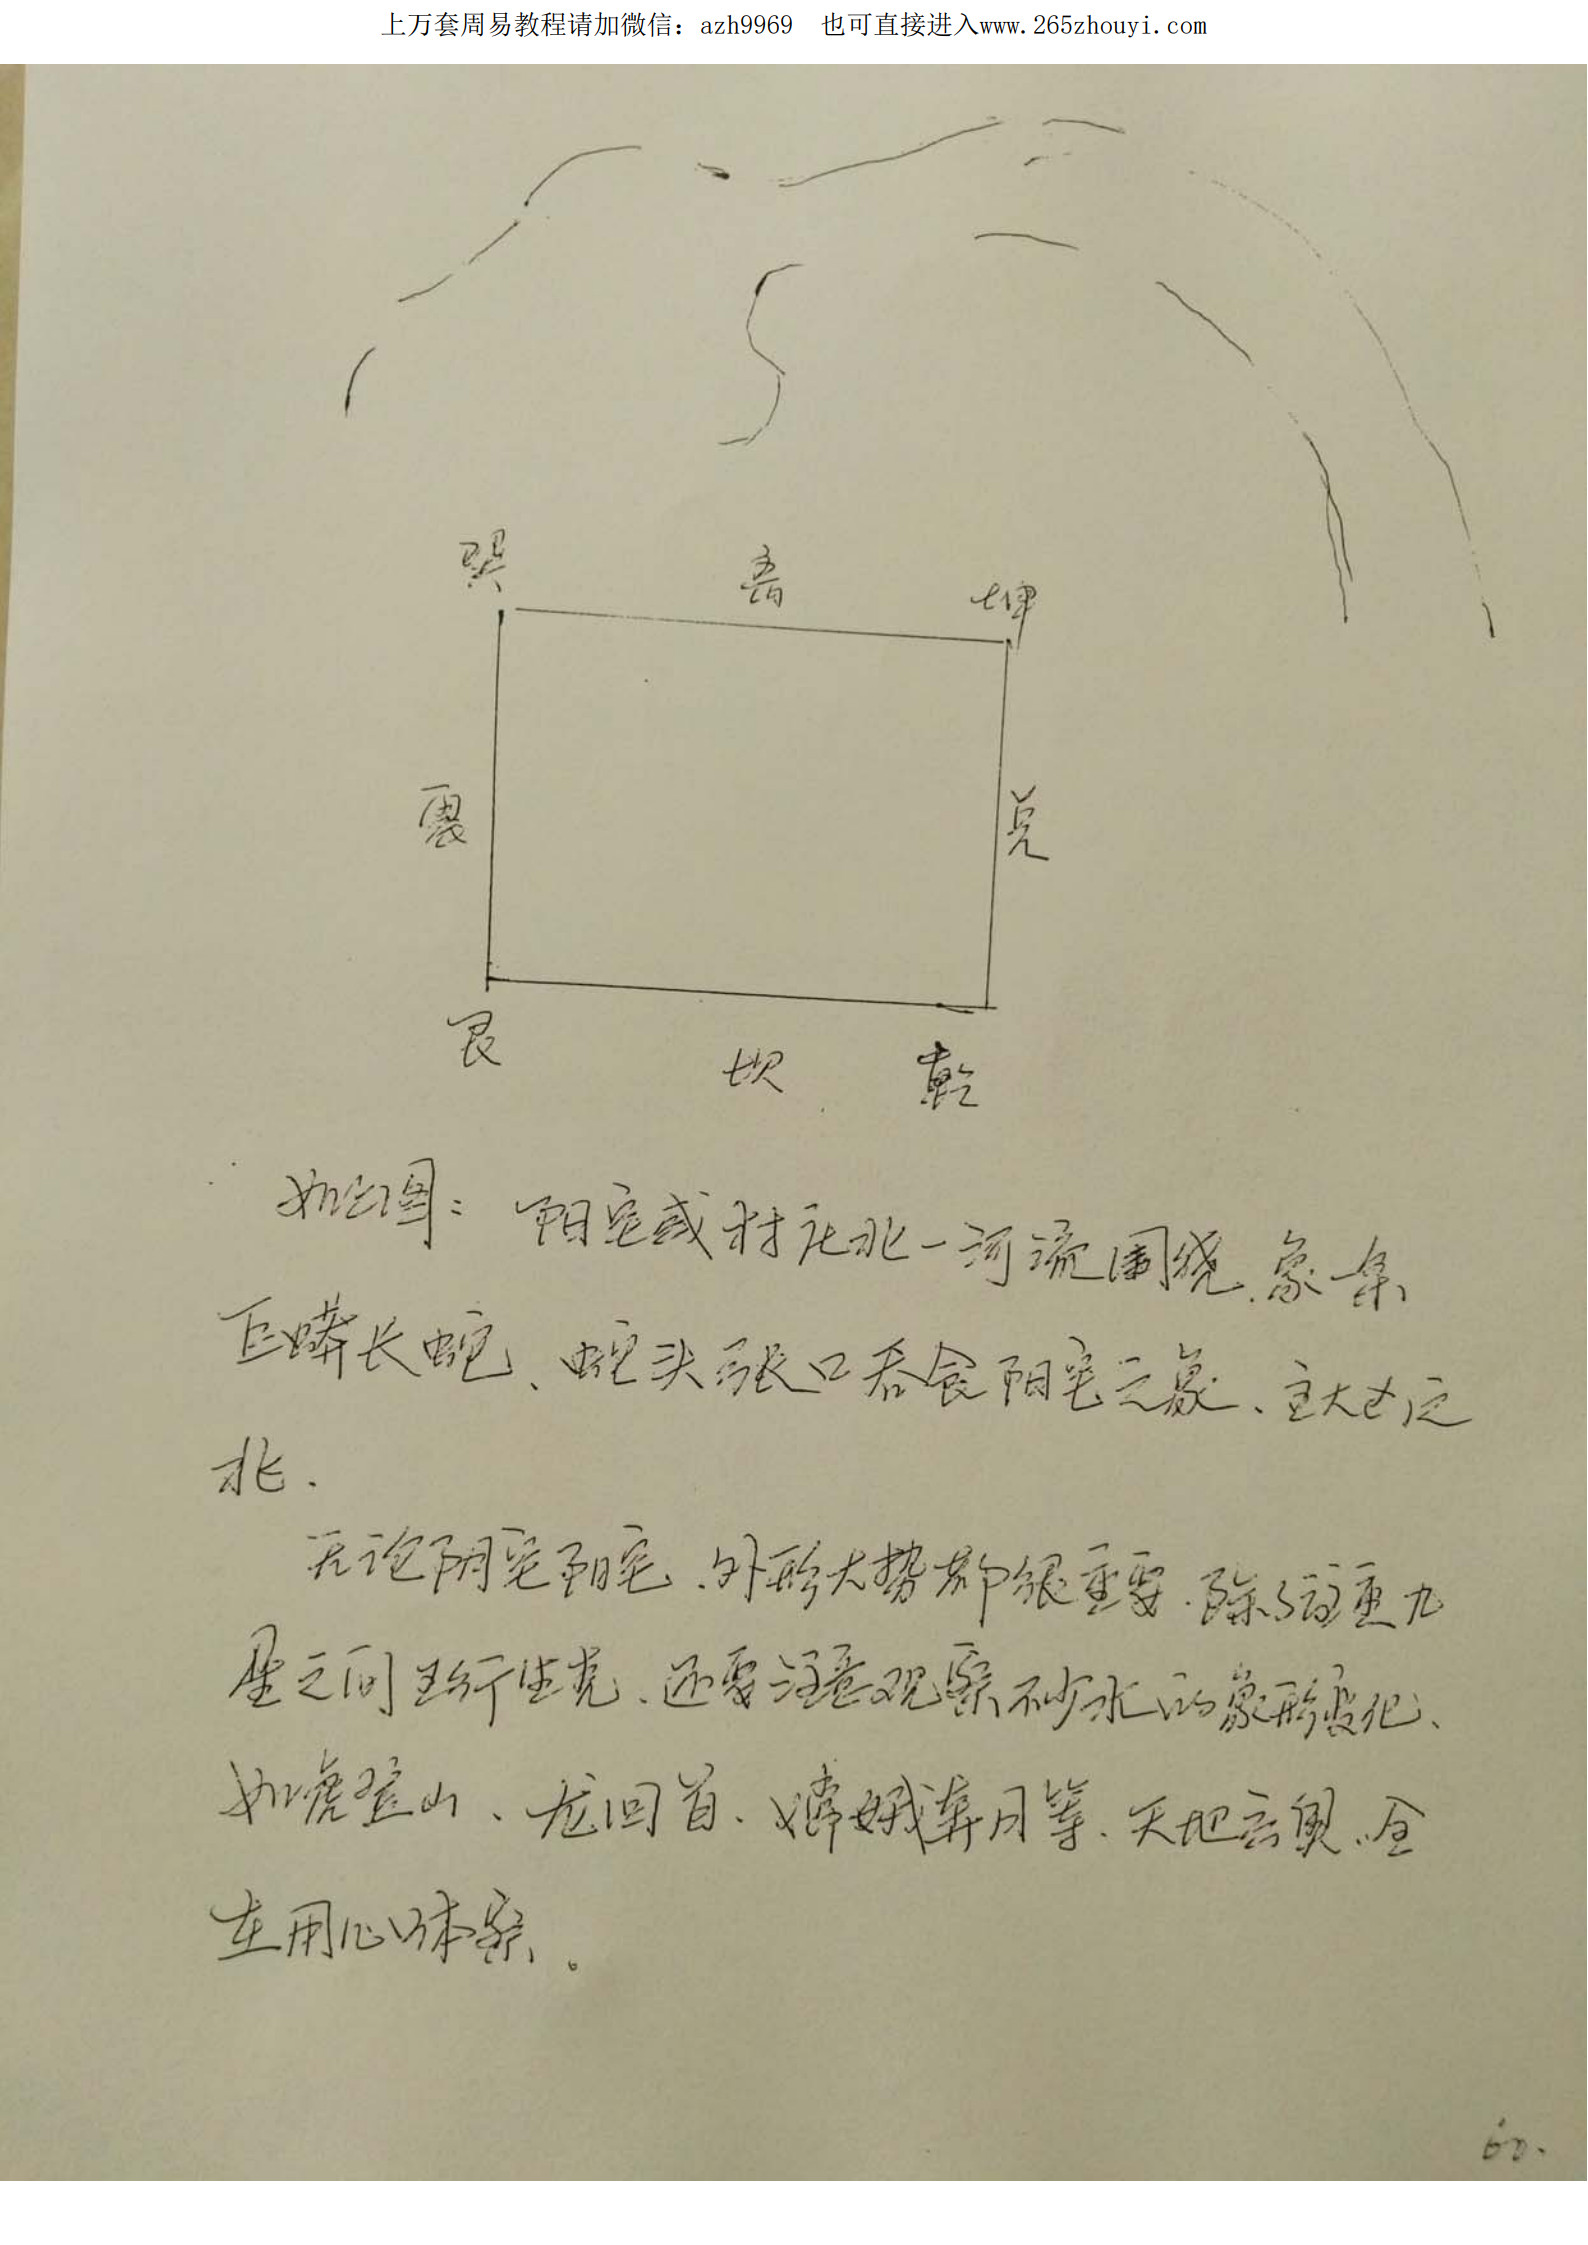 上万套周易教程请加微信：azh9969 也可直接进入www.265zhouyi.com
巽
坤
震
兑
艮
坎
乾
如此图：阳宅或村庄北一河流围绕、象一条
巨蟒长蛇、蛇头张口吞食阳宅之象、主大凶之
北.
无论阴宅阳宅、外形大势都很重要.除了注重九
星之间五行生克、还要注意观察砂水的象形变化、
如虎登山、龙回首、嫦娥奔月等、天地玄奥、全
在用心体察。
60.